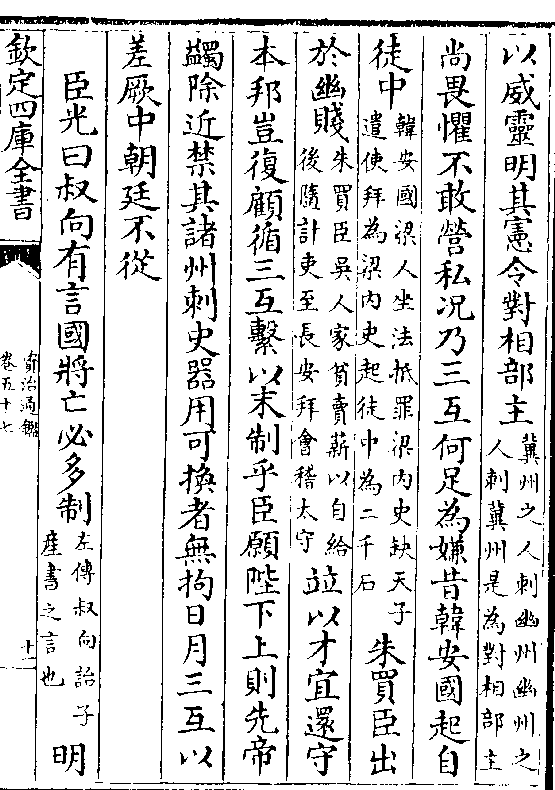 以威靈明其憲令對相部主冀州之人刺幽州幽州之
人刺冀州是為對相部主
尚畏懼不敢營私况乃三互何足為嫌昔韓安國起自
徒中韓安國梁人坐法抵罪梁内史缺天子
遣使拜為梁内史起徒中為二千石朱買臣出
於幽賤朱買臣吳人家貧賣薪以自給
後隨計吏至長安拜會稽太守竝以才宜還守
本邦豈復顧循三互繫以末制乎臣願陛下上則先帝
蠲除近禁其諸州刺史器用可換者無拘日月三互以
差厥中朝廷不從
臣光曰叔向有言國將亡必多制左傳叔向詒子
產書之言也明
欽定四庫全書
資治通鑑
卷五十七
十二